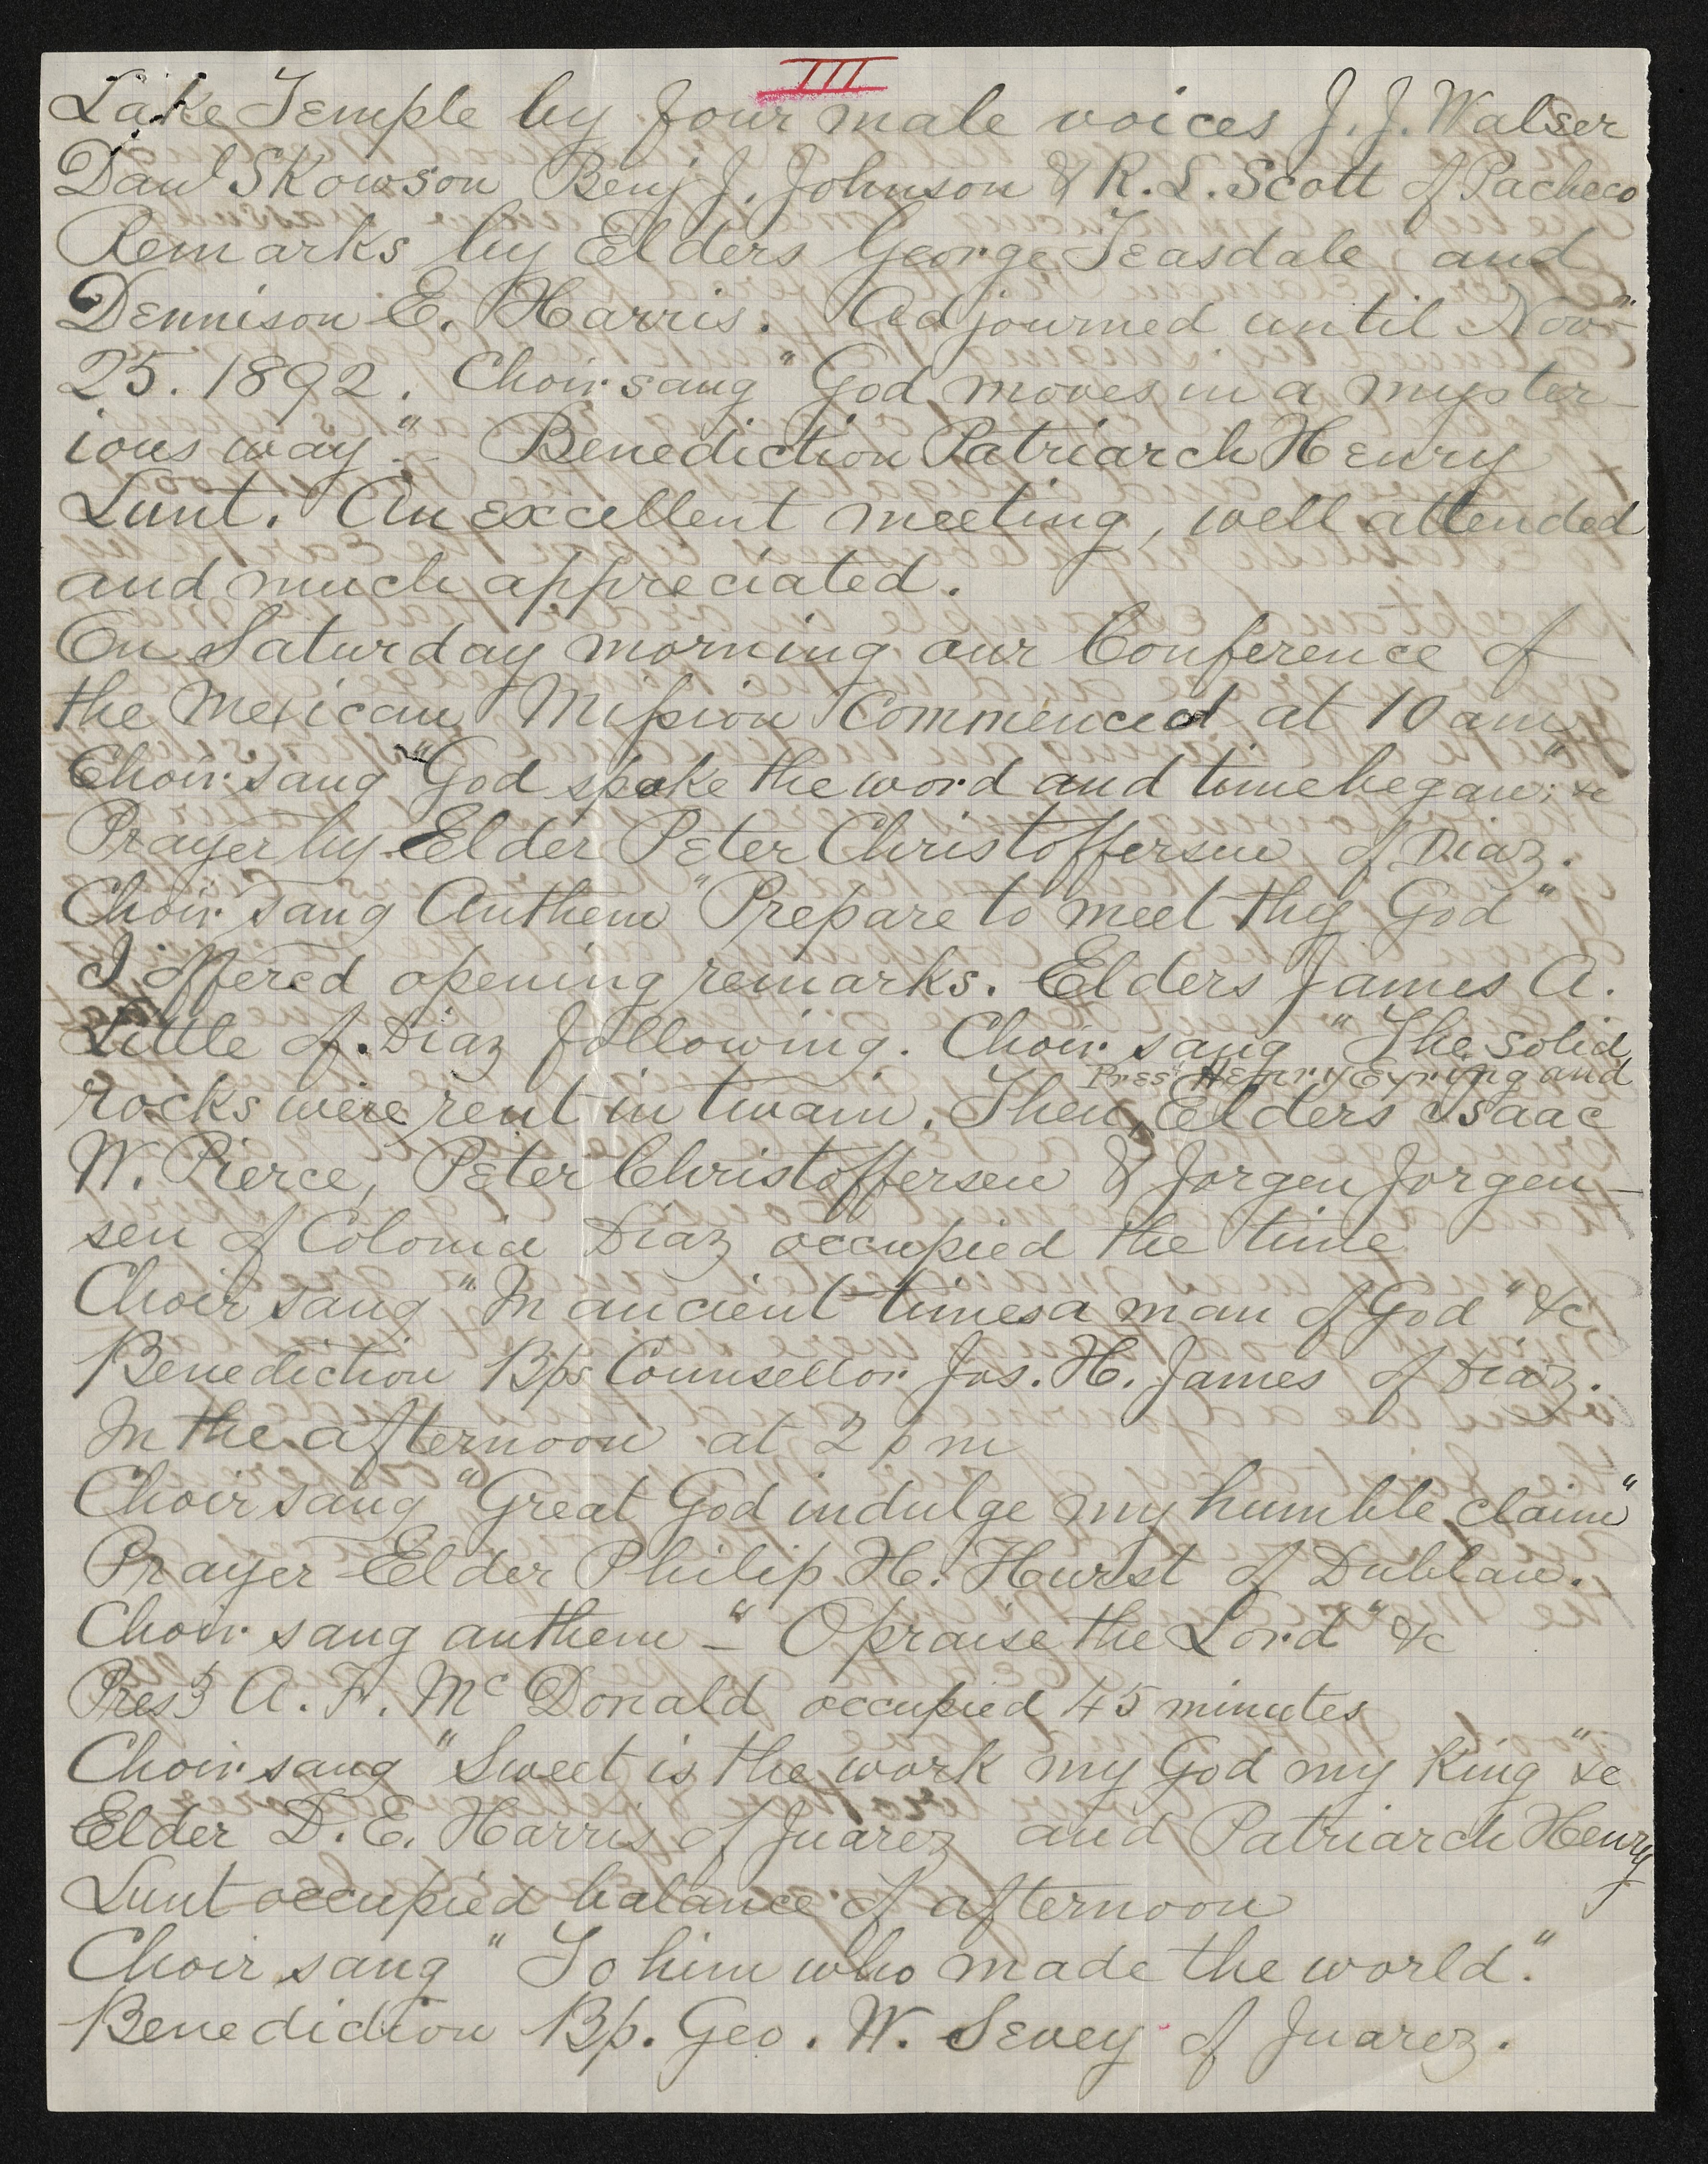 III
Lake Temple by four male voices J. J. Walser
Danl Skowson Benj J. Johnson & R. L. Scott of Pacheco
Remarks by Elders George Teasdale and
Dennison E. Harris. Adjourned until Nov
25. 1892. Choir sang "God moves in a myster-
ious way." - Benediction Patriarch Henry
Lunt. An excellent meeting, well attended
and much appreciated.
On Saturday morning our Conference of
the Mexican Mission Commenced at 10 am,
Choir sang "God spake the word and time began;" &c
Prayer by Elder Peter Christoffersen of Diaz.
Choir sang Anthem "Prepare to meet thy God"
I offered opening remarks. Elders James A.
Little of Diaz following. Choir sang "The solid
Prest Henry Eyring and
rocks were rent in twain. Then, Elders Isaac
W. Pierce, Peter Christoffersen & Jorgen Jorgen-
sen of Colonia Diaz occupied the time
Choir sang "In ancient times a man of God" &c
Benediction Bps Counsellor Jos. H. James of Diaz.
In the afternoon at 2 pm
Choir sang "Great God indulge my humble claim"
Prayer Elder Philip H. Hurst of Dublan.
Choir sang anthem - "O praise the Lord" &c
Prest A. F. McDonald occupied 45 minutes
Choir sang "Sweet is the work my God my King" &c
Elder D. E. Harris of Juarez and Patriarch Henry
Lunt occupied balance of afternoon
Choir sang "To him who made the world."
Benediction Bp. Geo. W. Sevey of Juarez.